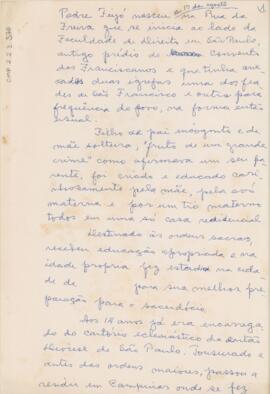 17 de agosto
Padre Feijó nasceu na Rua da
Freira que se inicia ao lado da
Faculdade de Direito em São Paulo,
antigo prédio de Convento
dos Franciscanos e que tinha ane-
xadas duas igrejas uma dos fra-
des de São Francisco e outra para
frequência do povo, na forma ento
usual.
Filho de pai incognito e de
mãe solteira, "fruto de um grande
crime" como afirmava um seu pa-
rente, foi criado e educado cari-
nhosamente pela mãe, pela avó
materna e por um tio materno
todos em uma só casa residencial
Destinado às ordens sacras,
recebeu educação apropriada e na
idade propria fez estada na cida-
de de para sua melhor pre-
paração para o sacerdócio.
Aos 14 anos já era encarrega-
do do cartório eclesiástico da então
Diocese de São Paulo. Tonsurado e
antes das ordens maiores, passou a
residir em Campinas onde se fez